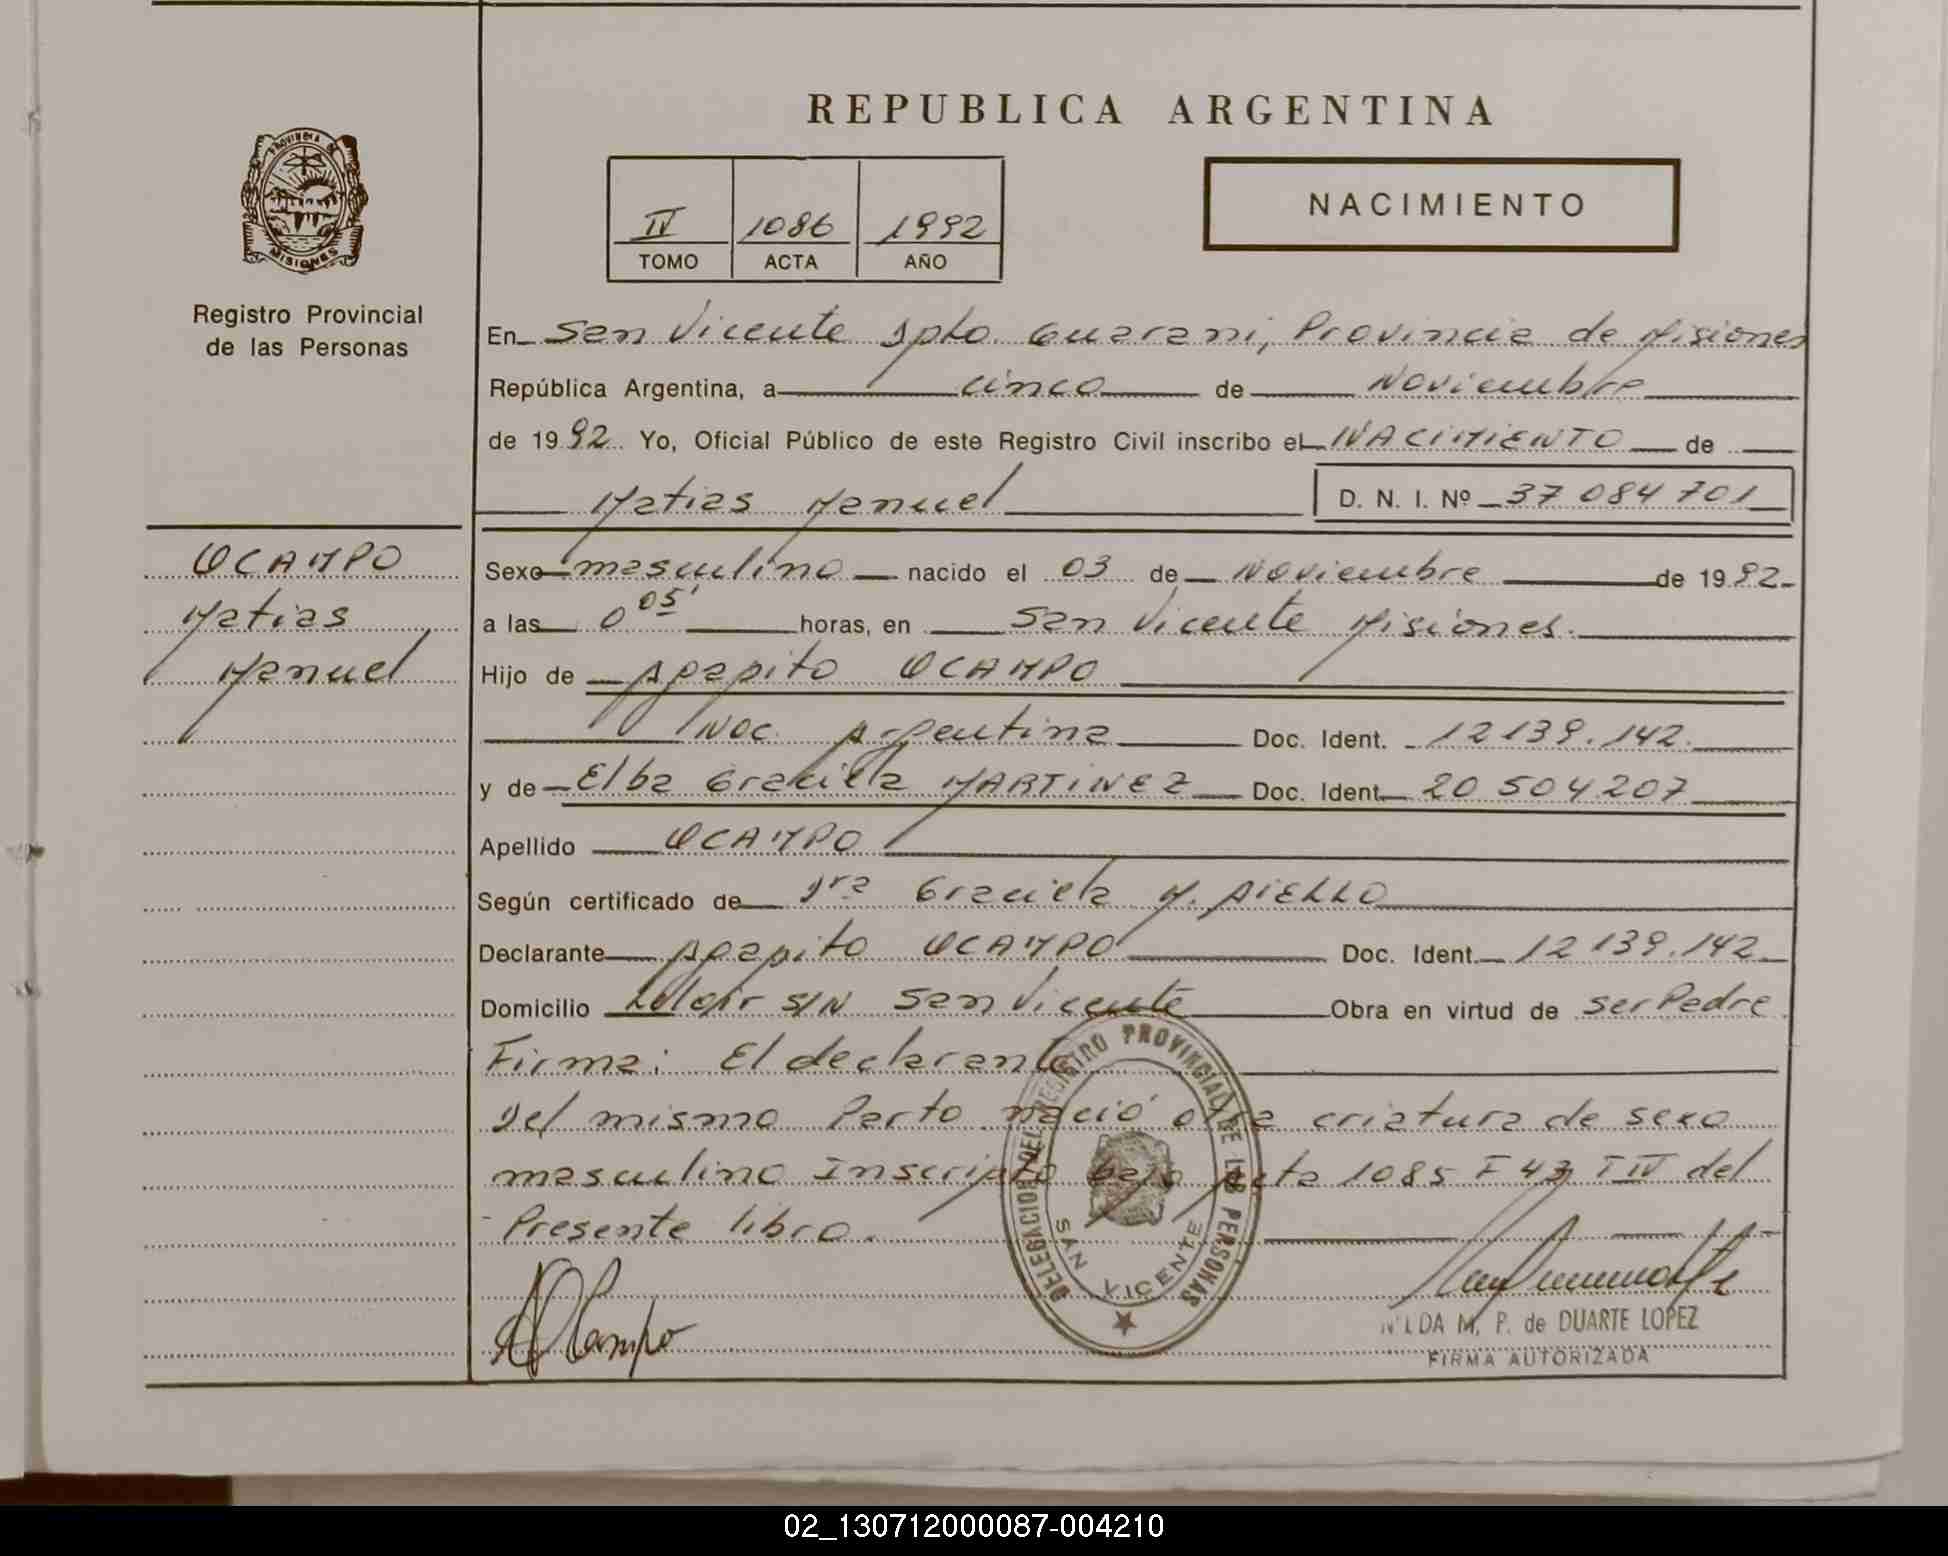 REPUBLICA ARGENTINA
PROVINCIA DE
MISIONES
Registro Provincial
de las Personas
IV 1086 1992
TOMO ACTA AÑO
NACIMIENTO
En San Vicente Dpto. Guarani, Provincia de Misiones
República Argentina, a cinco de Noviembre
de 1992. Yo, Oficial Público de este Registro Civil inscribo el NACIMIENTO de
Matias Manuel D. N. I. Nº 37 084 701
OCAMPO
Matias
Manuel
Sexo masculino nacido el 03 de Noviembre de 1992
a las 0 05' horas, en San Vicente Misiones.
Hijo de Agapito OCAMPO
Nac. Argentina Doc. Ident. 12 139.142
y de Elba Graciela MARTINEZ Doc. Ident. 20 504 207
Apellido OCAMPO
Según certificado de Dra Graciela M. AIELLO
Declarante Agapito OCAMPO Doc. Ident. 12 139.142
Domicilio S/N San Vicente Obra en virtud de ser Padre
Firma: El declarante
Del mismo Parto nació otra criatura de sexo
masculino Inscripto bajo acta 1085 F 43 T IV del
Presente libro.
DELEGACION DEL REGISTRO PROVINCIAL DE LAS PERSONAS
SAN VICENTE
AOcampo
NILDA M. P. de DUARTE LOPEZ
FIRMA AUTORIZADA
02_130712000087-004210